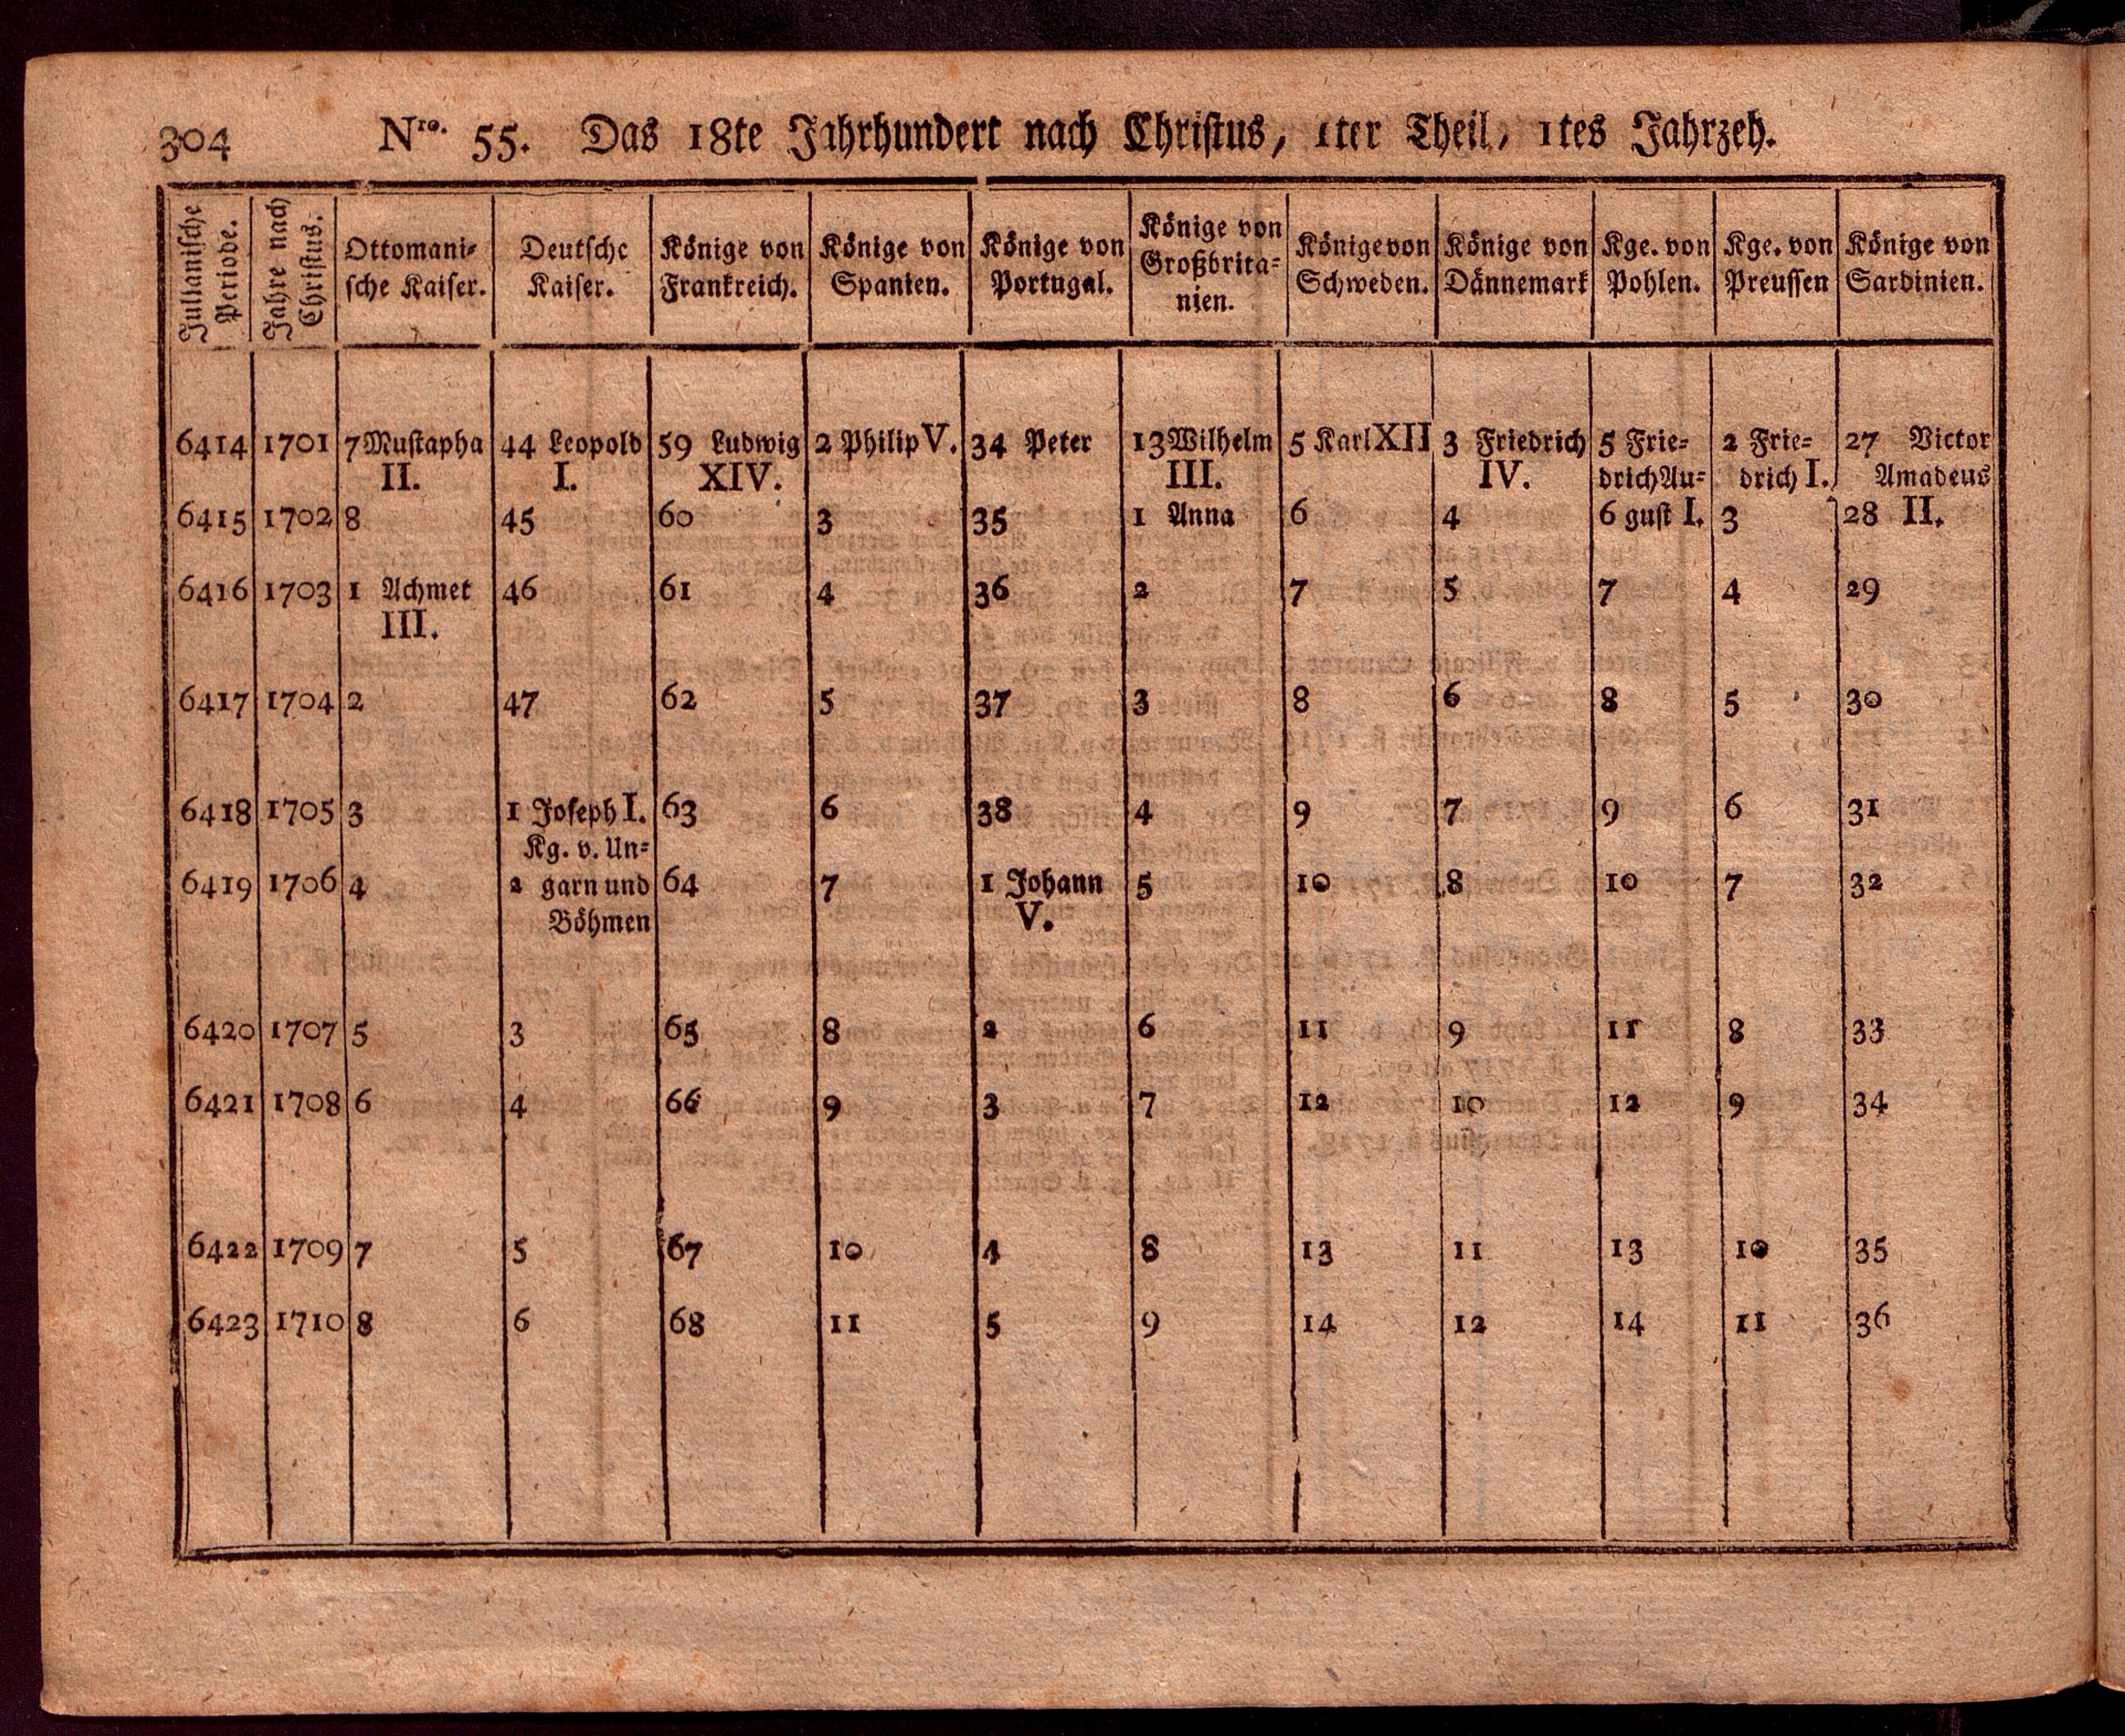 304 Nro. 55. Das 18te Jahrhundert nach Christus, 1ter Theil, 1tes Jahrzeh.
Julianische Periode.
Jahre nach Christus.
Ottomani-
sche Kaiser.
Deutsche
Kaiser.
Könige von
Frankreich.
Könige von
Spanien.
Könige von
Portugal.
Könige von
Großbrita-
nien.
Könige von
Schweden.
Könige von
Dännemark
Kge. von
Pohlen.
Kge. von
Preussen
Könige von
Sardinien.
6414 1701 7 Mustapha 44 Leopold 59 Ludwig 2 Philip V. 34 Peter 13 Wilhelm 5 Karl XII 3 Friedrich 5 Frie- 2 Frie- 27 Victor
II. I. XIV. III. IV. drich Au- drich I. Amadeus
6415 1702 8 45 60 3 35 1 Anna 6 4 6 gust I. 3 28 II.
6416 1703 1 Achmet 46 61 4 36 2 7 5 7 4 29
III.
6417 1704 2 47 62 5 37 3 8 6 8 5 30
6418 1705 3 1 Joseph I. 63 6 38 4 9 7 9 6 31
Kg. v. Un-
6419 1706 4 2 garn und 64 7 1 Johann 5 10 8 10 7 32
Böhmen V.
6420 1707 5 3 65 8 2 6 11 9 11 8 33
6421 1708 6 4 66 9 3 7 12 10 12 9 34
6422 1709 7 5 67 10 4 8 13 11 13 10 35
6423 1710 8 6 68 11 5 9 14 12 14 11 36